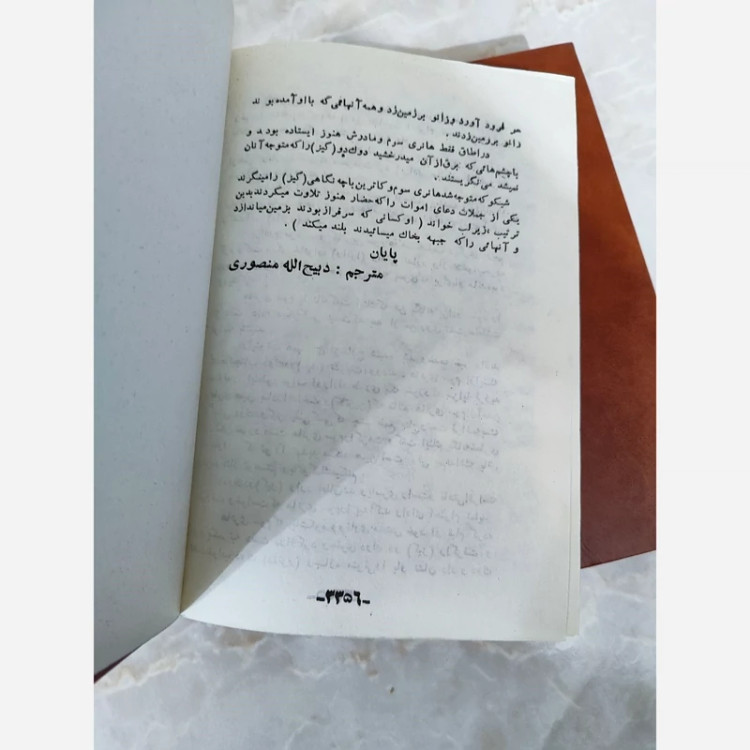 سر فرود آورد وزانو برزمین‌زد وهمه آنهائی‌که بااوآمده‌بودند
زانو برزمین‌زدند.
دراطاق فقط هانری سوم ومادرش هنوز ایستاده بودند و
باچشم‌هائی‌که برق‌ازآن میدرخشید دوک‌دو(گیز)راکه‌متوجه آنان
نمیشد می‌نگریستند.
شیکوکه‌متوجه‌شدهانری سوم‌وکاترین باچه‌نگاهی(گیز) رامینگرند
یکی از جملات دعای اموات راکه‌حضار هنوز تلاوت میکردندبدین
ترتیب زیرلب خواند ( اوکسانی که سرفرازبودند بزمین‌میاندازد
و آنهائی راکه جبهه بخاک میسائیدند بلند میکند ) .
پایان
مترجم : ذبیح‌الله منصوری